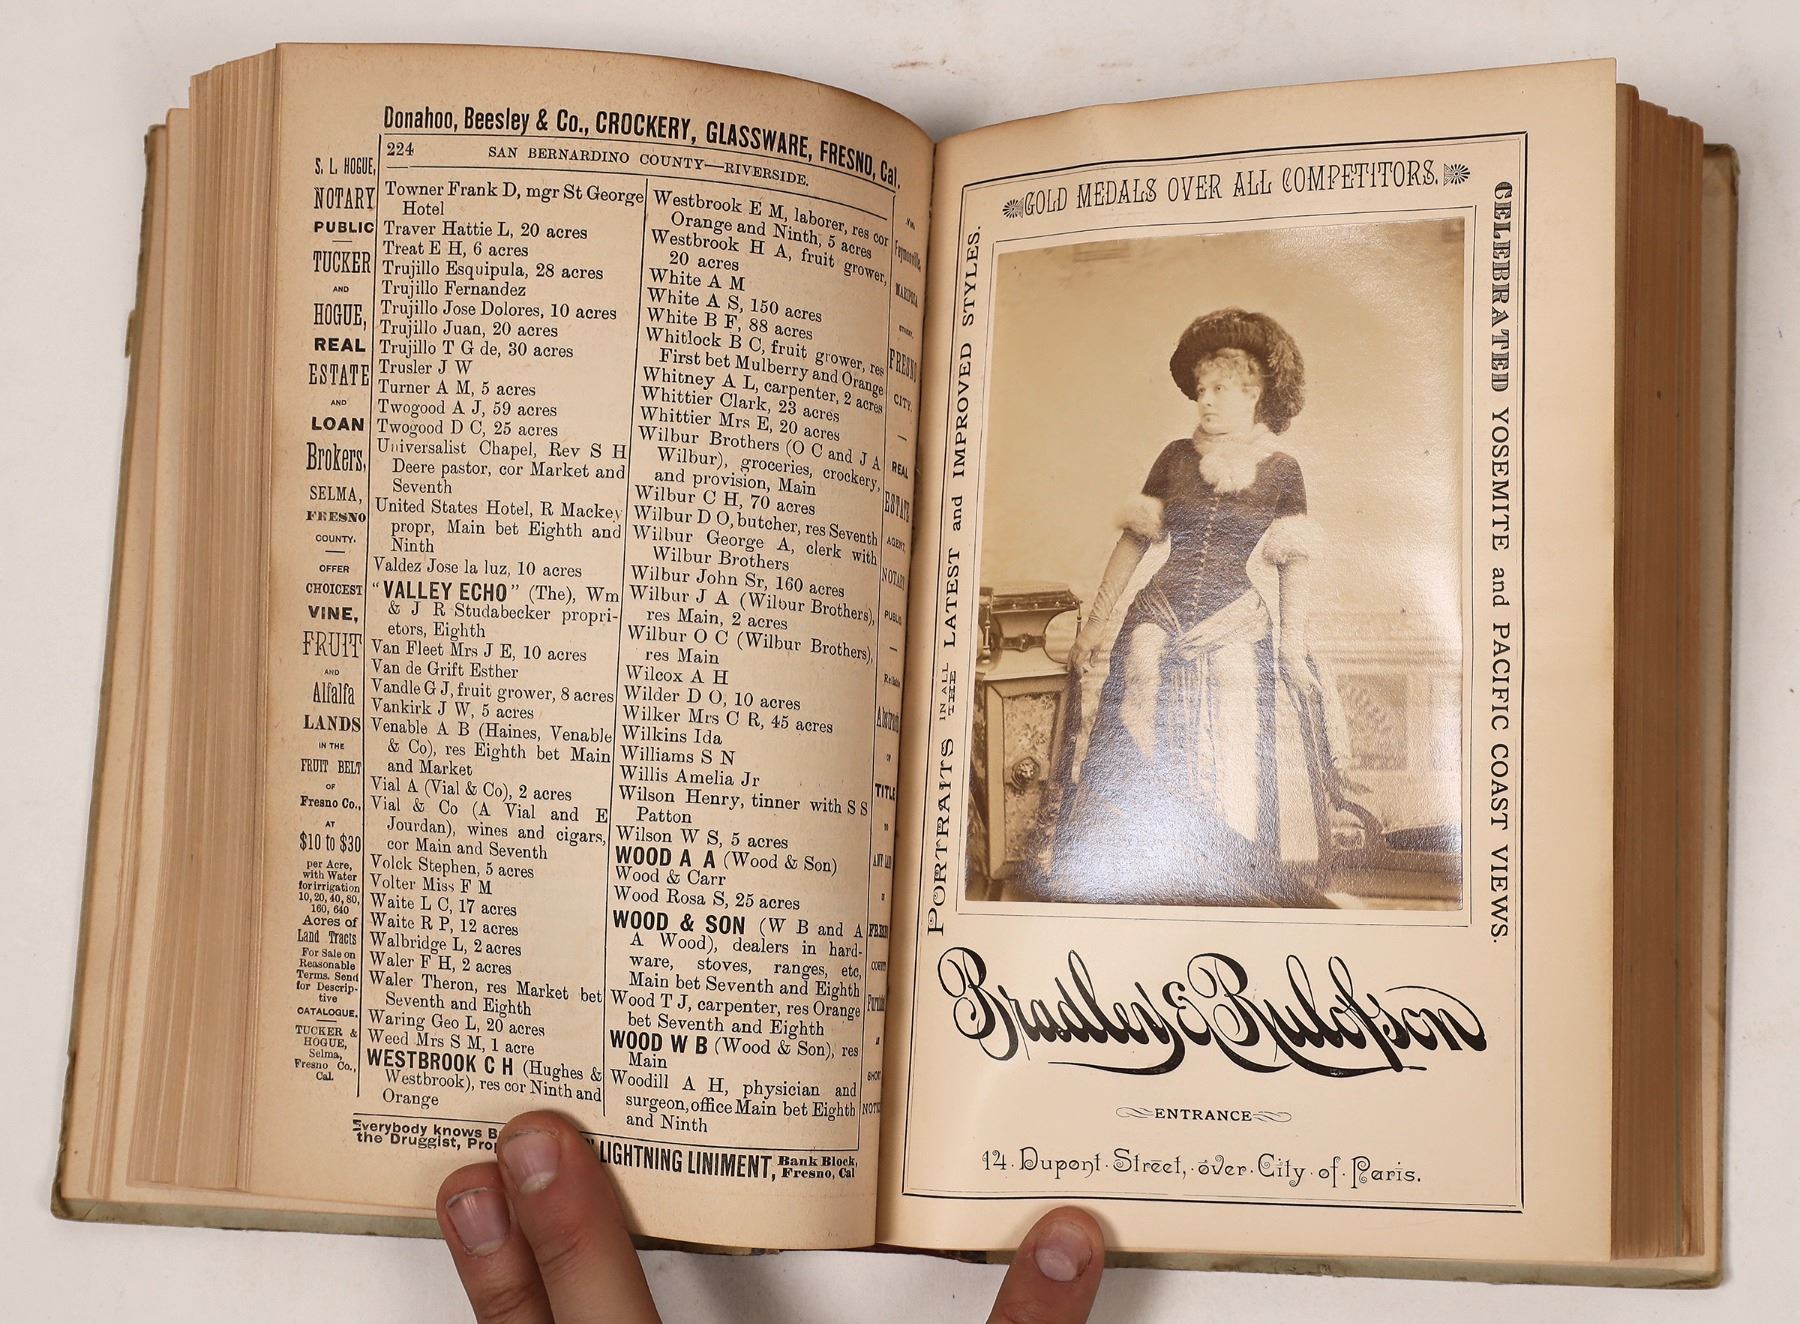 Donahoo, Beesley & Co., CROCKERY, GLASSWARE, FRESNO, Cal.
224 SAN BERNARDINO COUNTY—RIVERSIDE.
S. L. HOGUE,
NOTARY
PUBLIC
TUCKER
AND
HOGUE,
REAL
ESTATE
AND
LOAN
Brokers,
SELMA,
FRESNO
COUNTY.
OFFER
CHOICEST
VINE,
FRUIT
AND
Alfalfa
LANDS
IN THE
FRUIT BELT
OF
Fresno Co.,
AT
$10 to $30
per Acre,
with Water
for irrigation
10, 20, 40, 80,
160, 640
Acres of
Land Tracts
For Sale on
Reasonable
Terms. Send
for Descrip-
tive
CATALOGUE.
TUCKER &
HOGUE,
Selma,
Fresno Co.,
Cal.
Towner Frank D, mgr St George
Hotel
Traver Hattie L, 20 acres
Treat E H, 6 acres
Trujillo Esquipula, 28 acres
Trujillo Fernandez
Trujillo Jose Dolores, 10 acres
Trujillo Juan, 20 acres
Trujillo T G de, 30 acres
Trusler J W
Turner A M, 5 acres
Twogood A J, 59 acres
Twogood D C, 25 acres
Universalist Chapel, Rev S H
Deere pastor, cor Market and
Seventh
United States Hotel, R Mackey
propr, Main bet Eighth and
Ninth
Valdez Jose la luz, 10 acres
"VALLEY ECHO" (The), Wm
& J R Studabecker propri-
etors, Eighth
Van Fleet Mrs J E, 10 acres
Van de Grift Esther
Vandle G J, fruit grower, 8 acres
Vankirk J W, 5 acres
Venable A B (Haines, Venable
& Co), res Eighth bet Main
and Market
Vial A (Vial & Co), 2 acres
Vial & Co (A Vial and E
Jourdan), wines and cigars,
cor Main and Seventh
Volck Stephen, 5 acres
Volter Miss F M
Waite L C, 17 acres
Waite R P, 12 acres
Walbridge L, 2 acres
Waler F H, 2 acres
Waler Theron, res Market bet
Seventh and Eighth
Waring Geo L, 20 acres
Weed Mrs S M, 1 acre
WESTBROOK C H (Hughes &
Westbrook), res cor Ninth and
Orange
Westbrook E M, laborer, res cor
Orange and Ninth, 5 acres
Westbrook H A, fruit grower,
20 acres
White A M
White A S, 150 acres
White B F, 88 acres
Whitlock B C, fruit grower, res
First bet Mulberry and Orange
Whitney A L, carpenter, 2 acres
Whittier Clark, 23 acres
Whittier Mrs E, 20 acres
Wilbur Brothers (O C and J A
Wilbur), groceries, crockery,
and provision, Main
Wilbur C H, 70 acres
Wilbur D O, butcher, res Seventh
Wilbur George A, clerk with
Wilbur Brothers
Wilbur John Sr, 160 acres
Wilbur J A (Wilbur Brothers),
res Main, 2 acres
Wilbur O C (Wilbur Brothers),
res Main
Wilcox A H
Wilder D O, 10 acres
Wilker Mrs C R, 45 acres
Wilkins Ida
Williams S N
Willis Amelia Jr
Wilson Henry, tinner with S S
Patton
Wilson W S, 5 acres
WOOD A A (Wood & Son)
Wood & Carr
Wood Rosa S, 25 acres
WOOD & SON (W B and A
A Wood), dealers in hard-
ware, stoves, ranges, etc,
Main bet Seventh and Eighth
Wood T J, carpenter, res Orange
bet Seventh and Eighth
WOOD W B (Wood & Son), res
Main
Woodill A H, physician and
surgeon, office Main bet Eighth
and Ninth
MARIPOSA
FRESNO
CITY.
REAL
ESTATE
AGENT,
NOTARY
PUBLIC
Reliable
Abstracts
OF
TITLE
TO
Everybody knows
the Druggist,
LIGHTNING LINIMENT, Bank Block,
Fresno, Cal
GOLD MEDALS OVER ALL COMPETITORS.
PORTRAITS IN ALL THE LATEST and IMPROVED STYLES.
CELEBRATED YOSEMITE and PACIFIC COAST VIEWS.
Bradley & Rulofson
ENTRANCE
14 Dupont Street, over City of Paris.